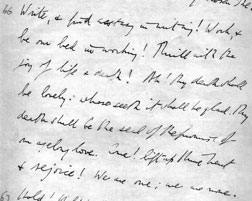 66 Write, & find ecstasy in writing! Work, &
be our bed in working! Thrill with the
joy of life & death! Ah! thy death shall
be lovely: whoso seeth it shall be glad. Thy
death shall be the seal of the promise of
our agelong love. Come! lift up thine heart
& rejoice! We are one; we are none.
67 Hold!